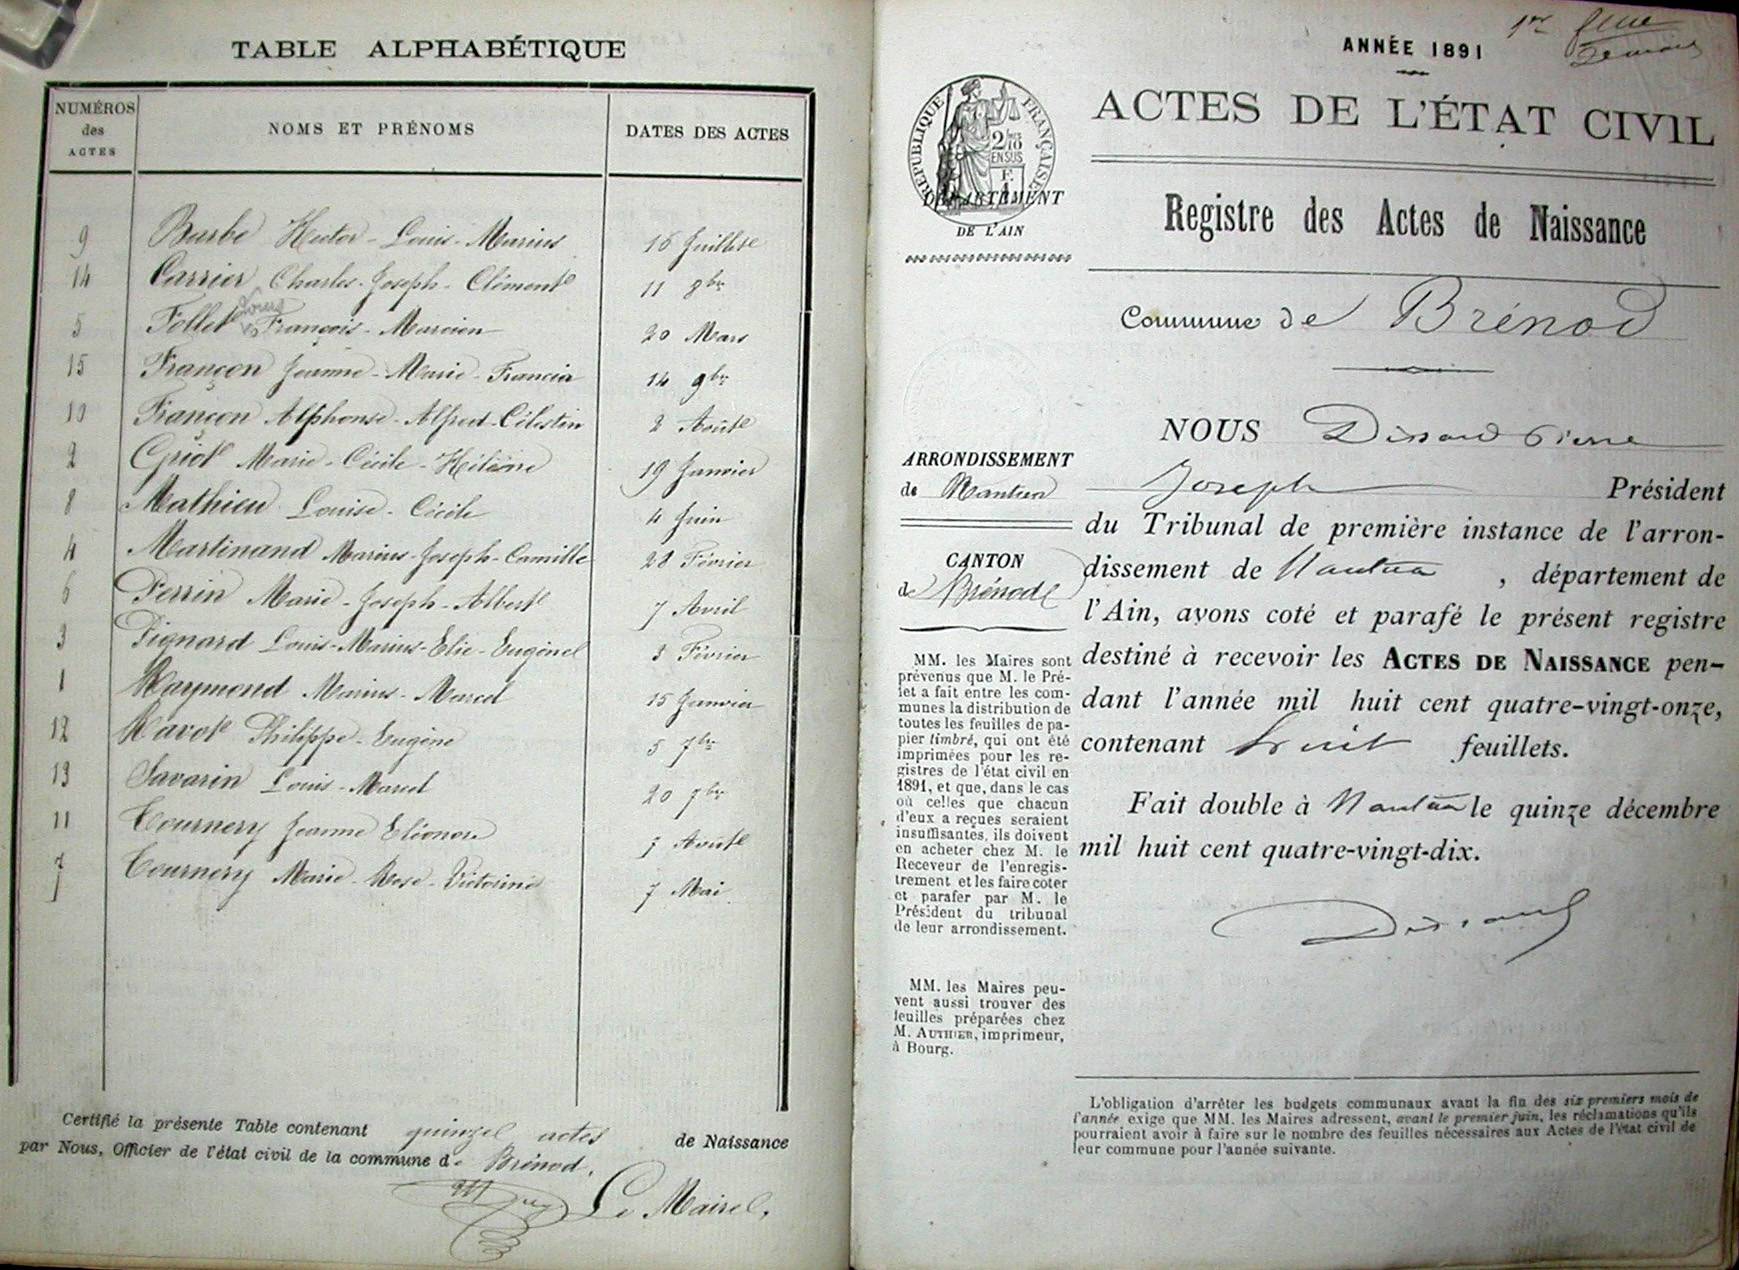 TABLE ALPHABÉTIQUE
NUMÉROS des ACTES
NOMS ET PRÉNOMS
DATES DES ACTES
9 Barbe Hector - Louis - Marius 16 Juillet
14 Carrier Charles - Joseph - Clément 11 8bre
Louis
5 Follet François - Marcien 20 Mars
15 Françon Jeanne - Marie - Francia 14 9bre
10 Françon Alphonse - Alfred - Célestin 2 Août
2 Griot Marie - Cécile - Hélène 19 Janvier
8 Mathieu Louise - Cécile 4 Juin
4 Martinand Marius - Joseph - Camille 28 Février
6 Perrin Marie - Joseph - Albert 7 Avril
3 Pignard Louis - Marius - Elie - Eugène 3 Février
1 Raymond Marius - Marcel 15 Janvier
12 Ravot Philippe - Eugène 5 7bre
13 Savarin Louis - Marcel 20 7bre
11 Tournery Jeanne Eléonore 7 Août
7 Tournery Marie - Rose - Victorine 7 Mai
Certifié la présente Table contenant quinze actes de Naissance
par Nous, Officier de l'état civil de la commune de Brénod.
Le Maire,
1er
ANNÉE 1891
ACTES DE L'ÉTAT CIVIL
RÉPUBLIQUE FRANÇAISE
2/10 EN SUS
DÉPARTEMENT
DE L'AIN
Registre des Actes de Naissance
Commune de Brénod
NOUS Dissard Pierre
ARRONDISSEMENT
de Nantua
Joseph Président
du Tribunal de première instance de l'arron-
CANTON
de Brénod
dissement de Nantua, département de
l'Ain, avons coté et parafé le présent registre
destiné à recevoir les ACTES DE NAISSANCE pen-
dant l'année mil huit cent quatre-vingt-onze,
contenant huit feuillets.
Fait double à Nantua le quinze décembre
mil huit cent quatre-vingt-dix.
Dissard
MM. les Maires sont
prévenus que M. le Pré-
fet a fait entre les com-
munes la distribution de
toutes les feuilles de pa-
pier timbré, qui ont été
imprimées pour les re-
gistres de l'état civil en
1891, et que, dans le cas
où celles que chacun
d'eux a reçues seraient
insuffisantes, ils doivent
en acheter chez M. le
Receveur de l'enregis-
trement et les faire coter
et parafer par M. le
Président du tribunal
de leur arrondissement.
MM. les Maires peu-
vent aussi trouver des
feuilles préparées chez
M. AUTHIER, imprimeur,
à Bourg.
L'obligation d'arrêter les budgets communaux avant la fin des six premiers mois de
l'année exige que MM. les Maires adressent, avant le premier juin, les réclamations qu'ils
pourraient avoir à faire sur le nombre des feuilles nécessaires aux Actes de l'état civil de
leur commune pour l'année suivante.